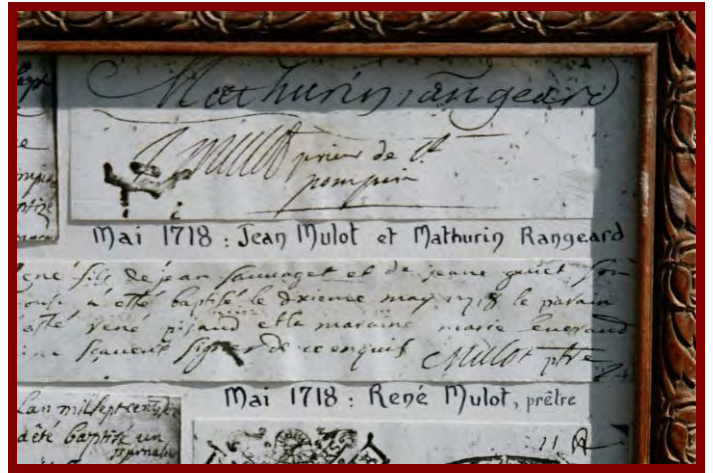 Sept
Mathurin rangeard
Mulot prieur de St
pompain
Mai 1718 : Jean Mulot et Mathurin Rangeard
rené fils de jean sauvaget et de jeanne guiet son
a esté baptisé le dixieme may 1718 le parain
esté rené pijaud et la maraine marie
scauent signer de ce enquis Mullot ptre
Mai 1718 : René Mulot, prêtre
Lan mil sept cent
a été baptisé un
11